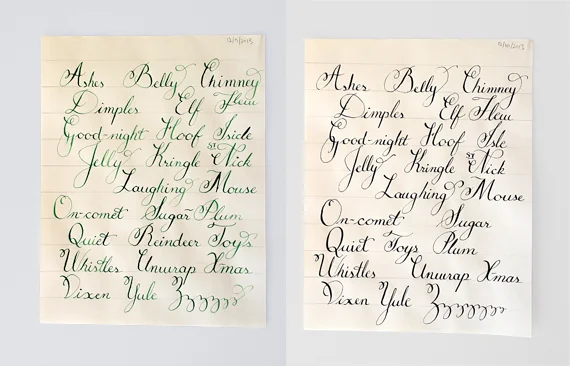 Ashes Belly Chimney
Dimples Elf Flew
Good-night Hoof Isicle
Jelly Kringle St Nick
Laughing Mouse
On-comet Sugar Plum
Quiet Reindeer Toys
Whistles Unwrap Xmas
Vixen Yule Zzzzzz
Ashes Belly Chimney
Dimples Elf Flew
Good-night Hoof Isle
Jelly Kringle St Nick
Laughing Mouse
On-comet Sugar
Quiet Toys Plum
Whistles Unwrap X-mas
Vixen Yule Zzzzzzz